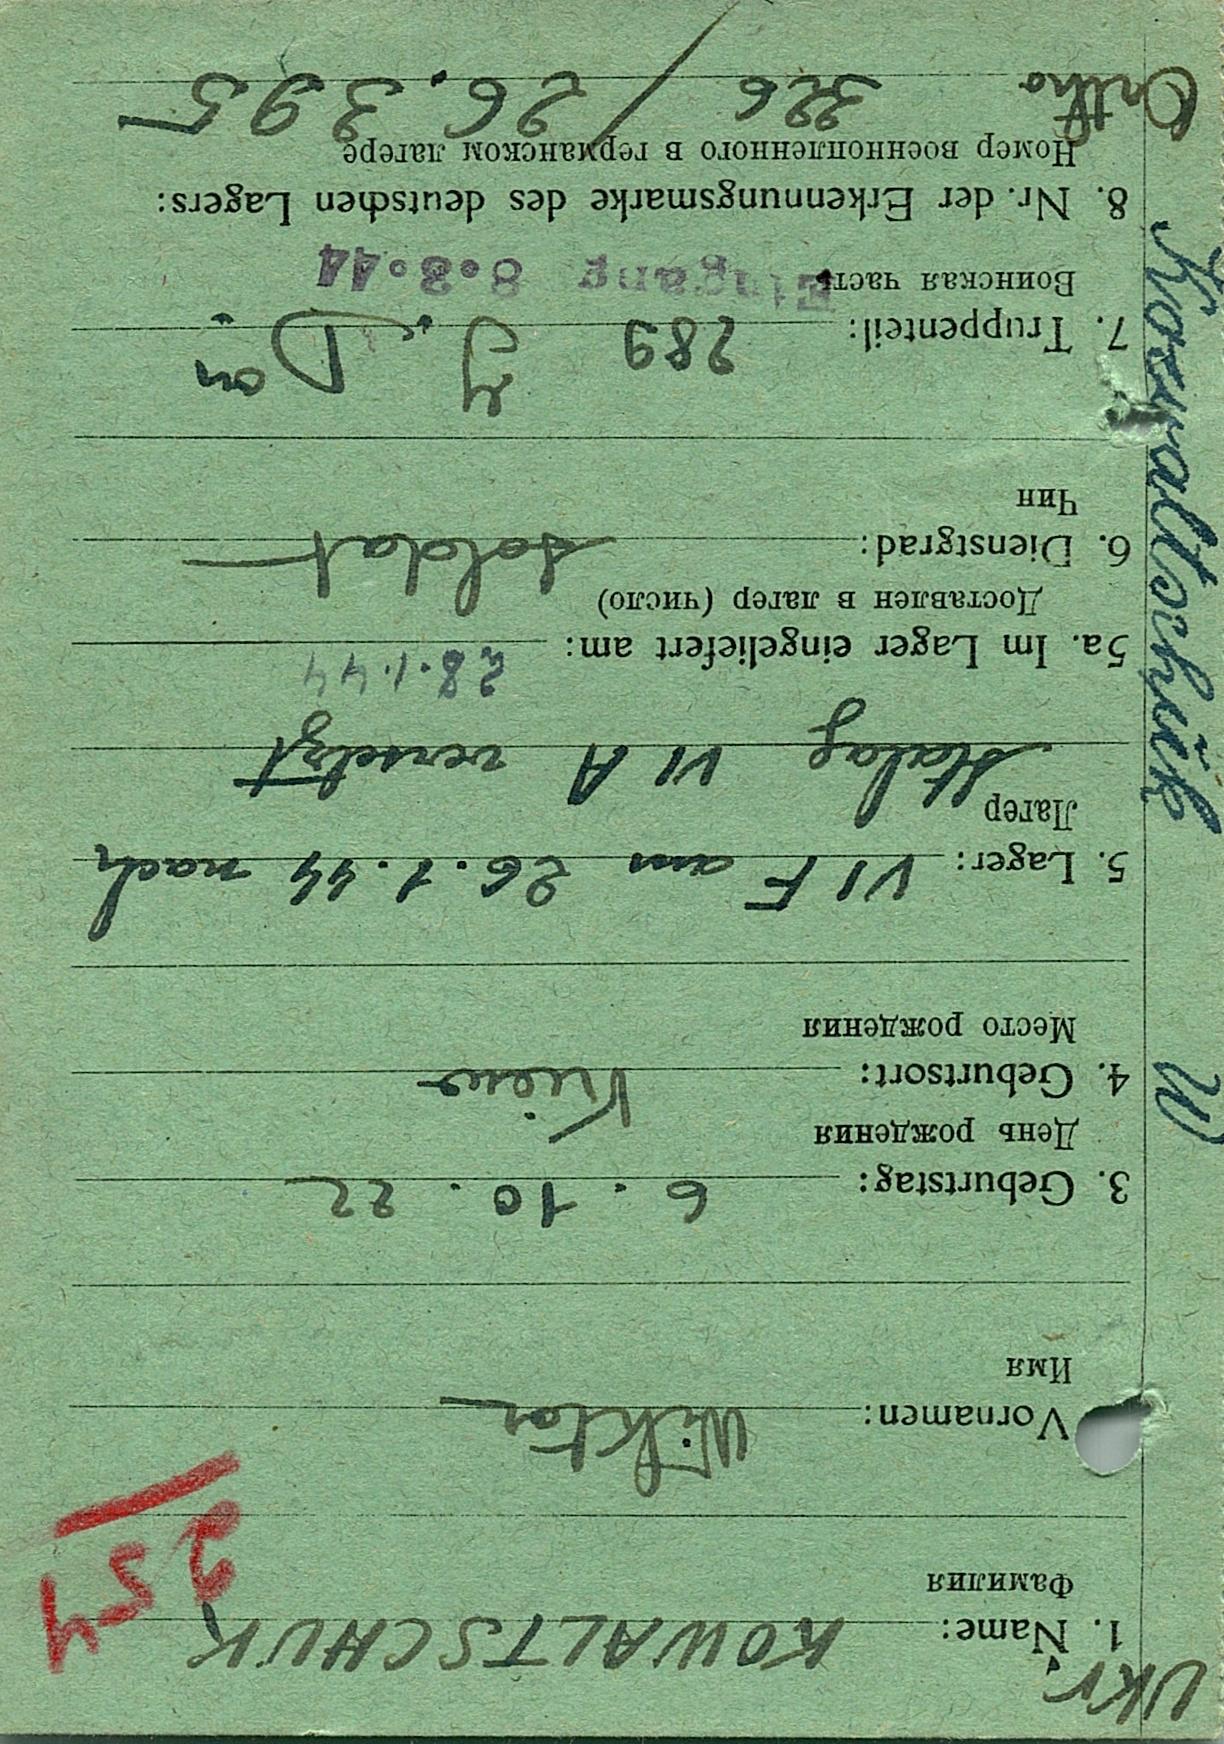 Ukr.
1. Name: KOWALTSCHUK
Фамилия
254
Vornamen: Wiktor
Имя
3. Geburtstag: 6. 10. 22
День рождения
4. Geburtsort: Kiew
Место рождения
5. Lager: VI F am 26.1.44 nach
Лагер
Stalag VI A versetzt
5a. Im Lager eingeliefert am: 28.1.44
Доставлен в лагер (число)
6. Dienstgrad: Soldat
Чин
7. Truppenteil: 289 J. Don
Воинская часть
Eingang 8.3.44
8. Nr. der Erkennungsmarke des deutschen Lagers:
Номер военнопленного в германском лагере
326 / 26.395
Ortho
Kowaltschuk W